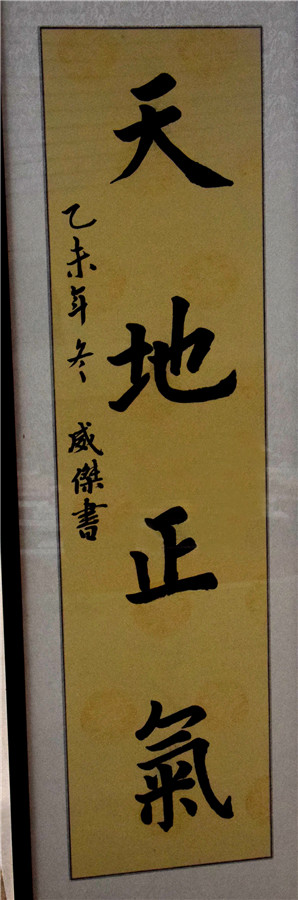 天地正氣
乙未年冬 威傑書